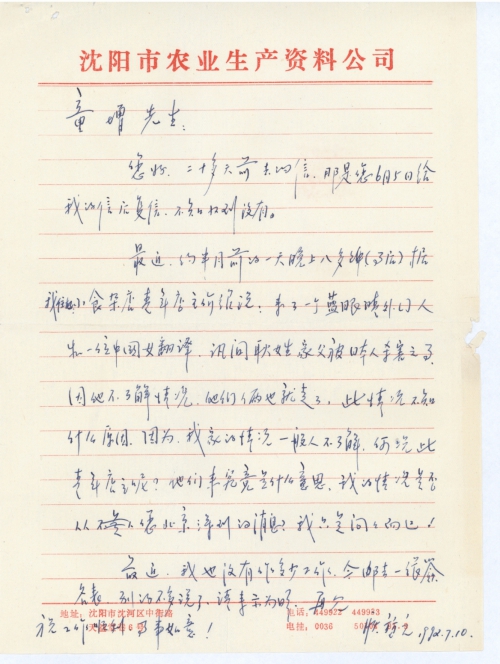 沈阳市农业生产资料公司
童增先生:
您好。二十多天前去的信,那是您6月5日给
我的信后复信,不知收到没有。
最近,约半月前的一天晚上八多钟(事后)据
食杂店青年店主介绍说:来了一个蓝眼睛外国人
和一位中国女翻译,讯问耿姓家父被日本人杀害之事,
因他不了解情况,他们俩也就走了,此情况不知
什么原因,因为,我家的情况一般人不了解,何况此
青年店主呢?他们来究竟是什么意思,我的情况是否
从不是人您北京得到的消息?我只是问问而已!
最近,我也没有作多少工作,今邮去一张签
名表,别的不多说了,请来示为盼。再见
地址:沈阳市沈河区中街路 电话:449922 449953
电挂:0036
祝工作顺利万事如意! 1992.7.10.